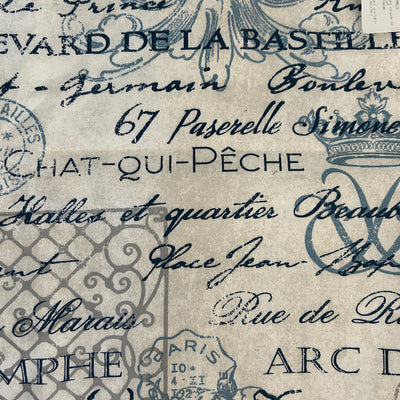 Prince
EVARD DE LA BASTILLE
- Germain Boulev
67 Paserelle Simone
AILLES
CHAT-QUI-PÊCHE
Halles et quartier Beau
ent Place Jean
Marais Rue de R
PARIS
10 *
4 - II
MPHE ARC D